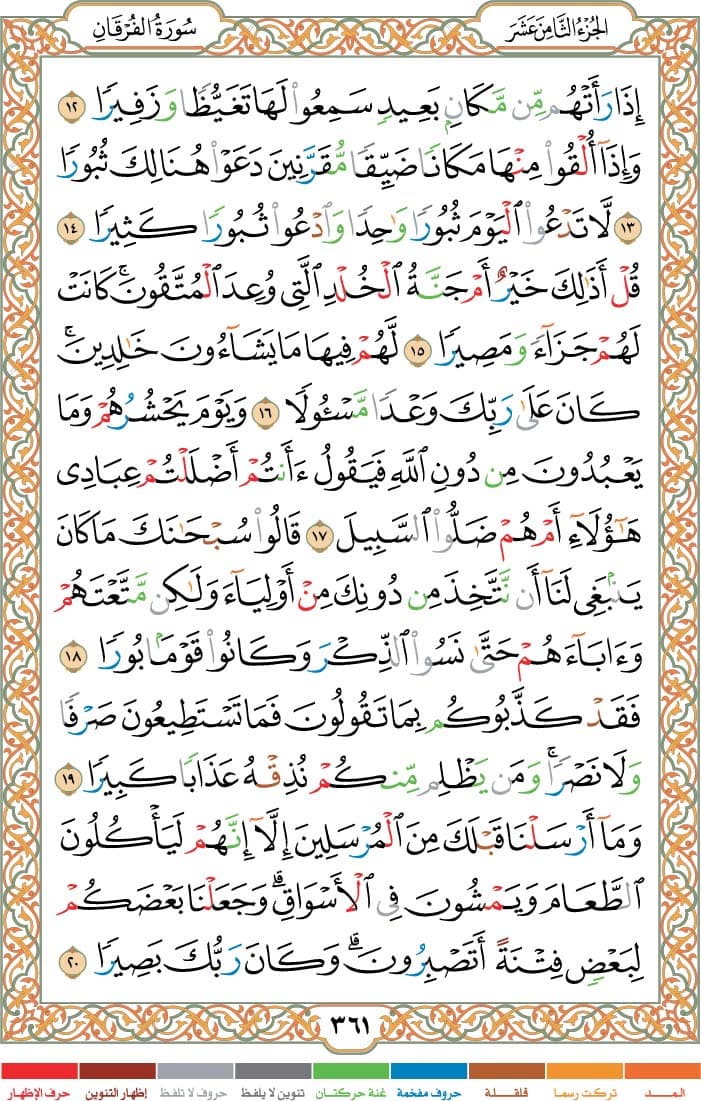 الجُزْءُ الثَّامِنَ عَشَرَ
سُورَةُ الفُرْقَانِ
إِذَا رَأَتْهُم مِّن مَّكَانٍ بَعِيدٍ سَمِعُوا۟ لَهَا تَغَيُّظًا وَزَفِيرًا ١٢
وَإِذَآ أُلْقُوا۟ مِنْهَا مَكَانًا ضَيِّقًا مُّقَرَّنِينَ دَعَوْا۟ هُنَالِكَ ثُبُورًا
١٣ لَّا تَدْعُوا۟ ٱلْيَوْمَ ثُبُورًا وَٰحِدًا وَٱدْعُوا۟ ثُبُورًا كَثِيرًا ١٤
قُلْ أَذَٰلِكَ خَيْرٌ أَمْ جَنَّةُ ٱلْخُلْدِ ٱلَّتِى وُعِدَ ٱلْمُتَّقُونَ ۚ كَانَتْ
لَهُمْ جَزَآءً وَمَصِيرًا ١٥ لَّهُمْ فِيهَا مَا يَشَآءُونَ خَٰلِدِينَ ۚ
كَانَ عَلَىٰ رَبِّكَ وَعْدًا مَّسْـُٔولًا ١٦ وَيَوْمَ يَحْشُرُهُمْ وَمَا
يَعْبُدُونَ مِن دُونِ ٱللَّهِ فَيَقُولُ ءَأَنتُمْ أَضْلَلْتُمْ عِبَادِى
هَٰٓؤُلَآءِ أَمْ هُمْ ضَلُّوا۟ ٱلسَّبِيلَ ١٧ قَالُوا۟ سُبْحَٰنَكَ مَا كَانَ
يَنۢبَغِى لَنَآ أَن نَّتَّخِذَ مِن دُونِكَ مِنْ أَوْلِيَآءَ وَلَٰكِن مَّتَّعْتَهُمْ
وَءَابَآءَهُمْ حَتَّىٰ نَسُوا۟ ٱلذِّكْرَ وَكَانُوا۟ قَوْمًۢا بُورًا ١٨
فَقَدْ كَذَّبُوكُم بِمَا تَقُولُونَ فَمَا تَسْتَطِيعُونَ صَرْفًا
وَلَا نَصْرًا ۚ وَمَن يَظْلِم مِّنكُمْ نُذِقْهُ عَذَابًا كَبِيرًا ١٩
وَمَآ أَرْسَلْنَا قَبْلَكَ مِنَ ٱلْمُرْسَلِينَ إِلَّآ إِنَّهُمْ لَيَأْكُلُونَ
ٱلطَّعَامَ وَيَمْشُونَ فِى ٱلْأَسْوَاقِ ۗ وَجَعَلْنَا بَعْضَكُمْ
لِبَعْضٍ فِتْنَةً أَتَصْبِرُونَ ۗ وَكَانَ رَبُّكَ بَصِيرًا ٢٠
٣٦١
المـــد
تركت رسما
قلقـــلة
حروف مفخمة
غنة حركتـان
تنوين لا يلفظ
حروف لا تلفظ
إظهار التنوين
حرف الإظهار